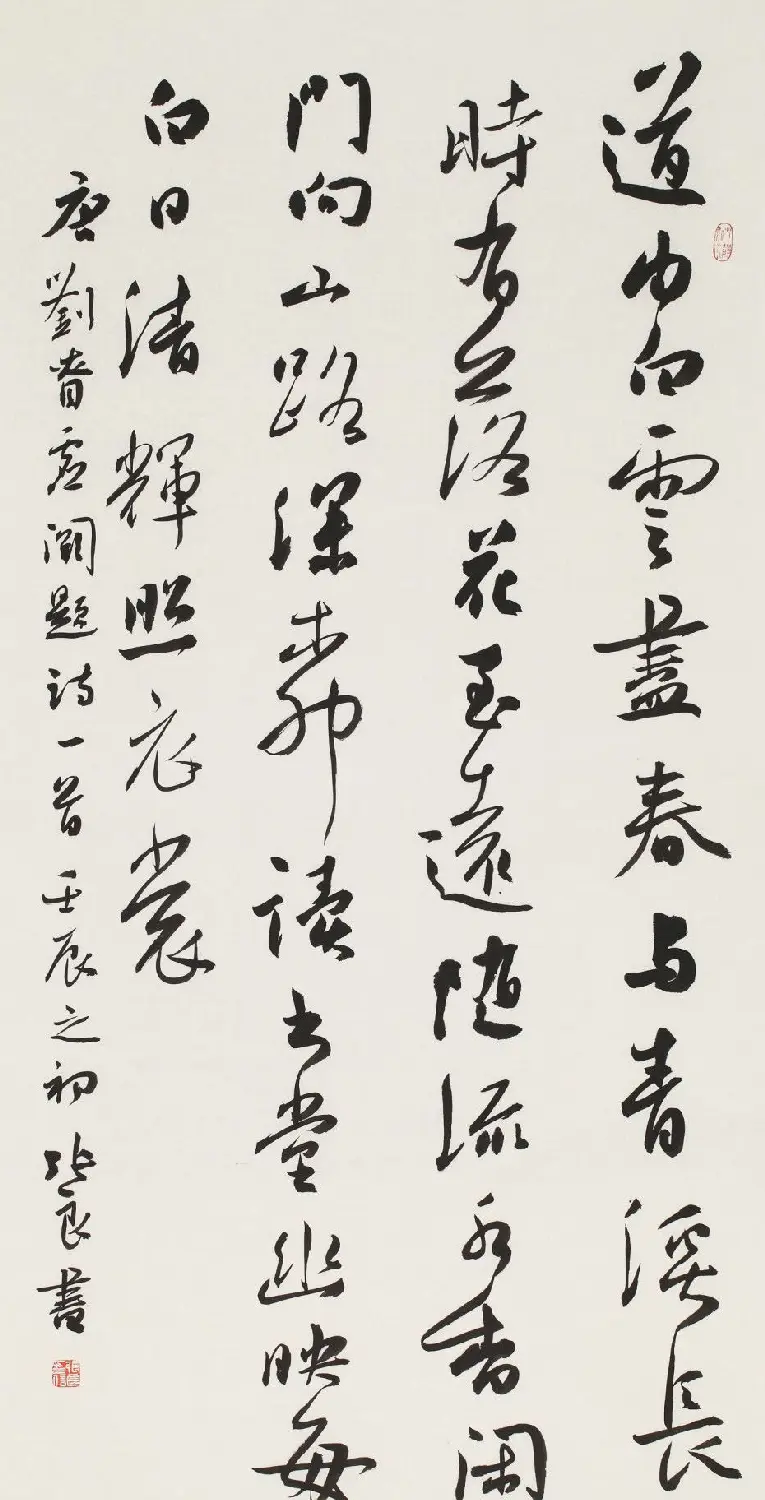 道由白雲盡春与青溪長
時有落花至遠隨流水香閑
門向山路深柳讀書堂幽映每
白日清輝照衣裳
唐劉眘虛闕題詩一首壬辰之初張良書